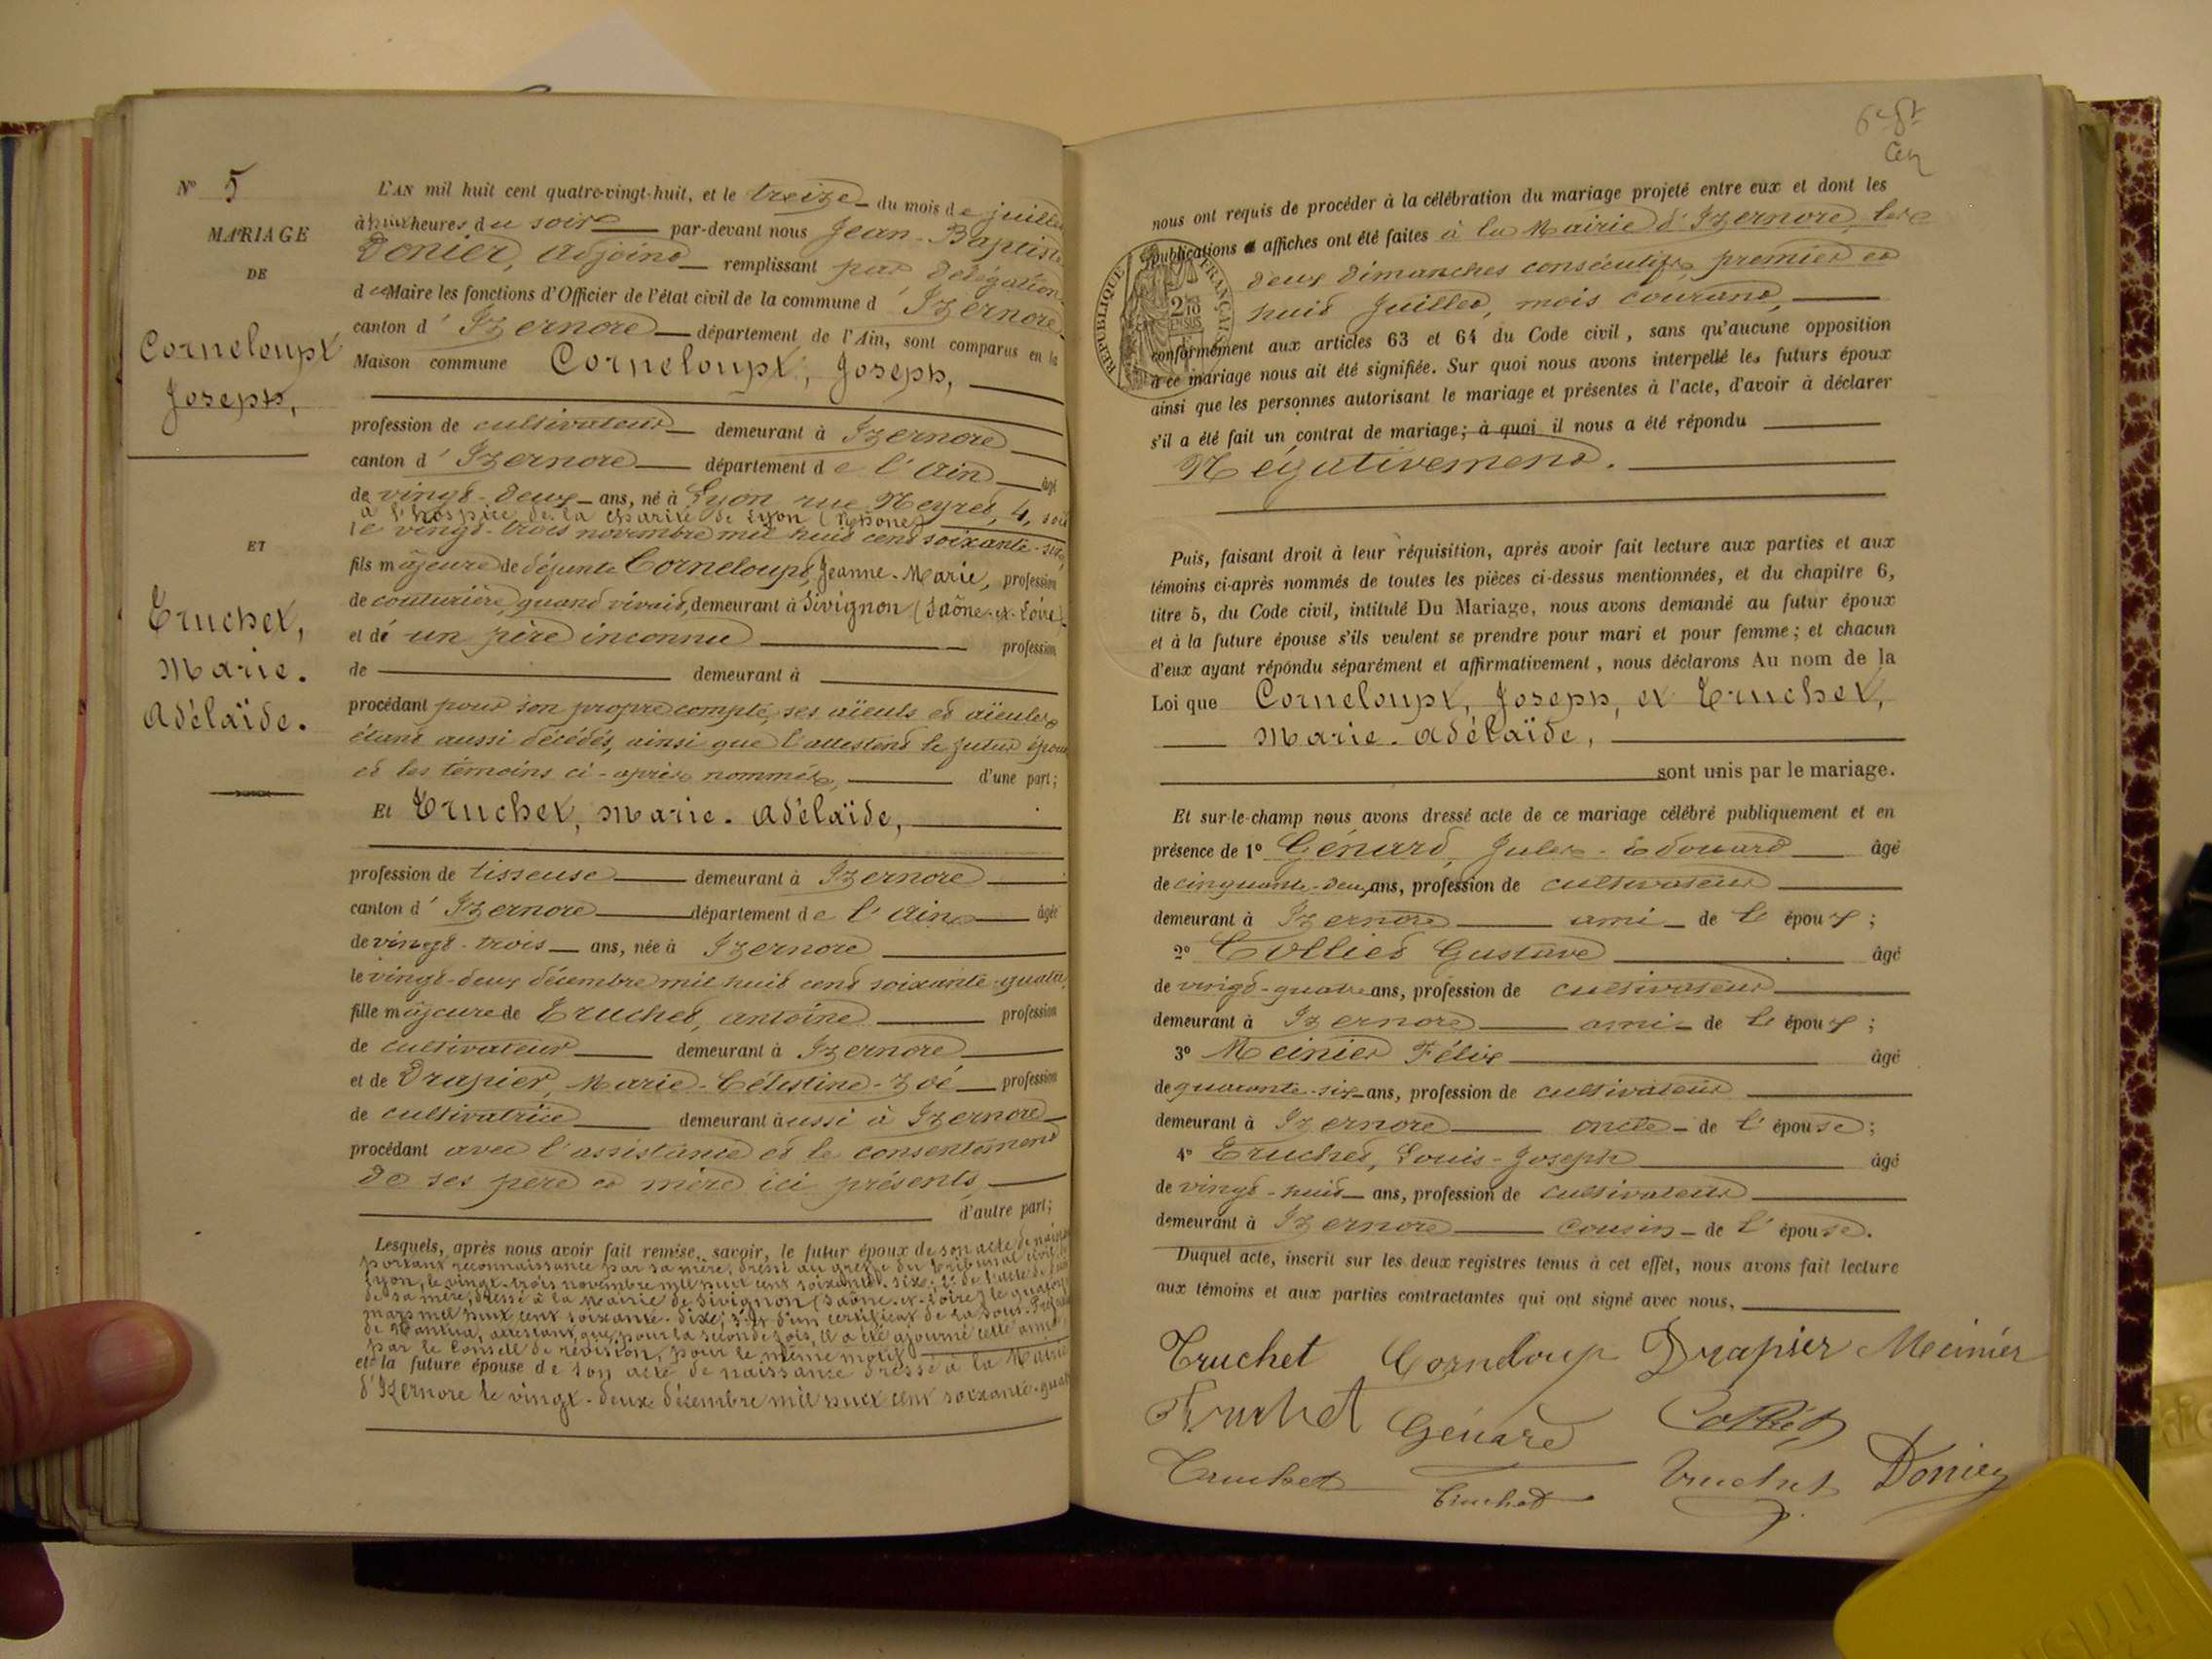 N° 5
MARIAGE
DE
Corneloupt
Joseph,
ET
Truchet,
Marie-
Adélaïde.
L'AN mil huit cent quatre-vingt-huit, et le treize du mois de juillet
à huit heures du soir par-devant nous Jean-Baptiste
Donier, adjoint remplissant par délégation
du Maire les fonctions d'Officier de l'état civil de la commune d'Izernore
canton d'Izernore département de l'Ain, sont comparus en la
Maison commune Corneloupt, Joseph,
profession de cultivateur demeurant à Izernore
canton d'Izernore département de l'Ain âgé
de vingt-deux ans, né à Lyon rue Neyret, 4, soit
à l'hospice de la Charité de Lyon (Rhône)
le vingt-trois novembre mil huit cent soixante-six,
fils majeur de défunte Corneloupt, Jeanne-Marie, profession
de couturière quand vivait, demeurant à Sivignon (Saône-et-Loire)
et de un père inconnu profession
de demeurant à
procédant pour son propre compte, ses aïeuls et aïeules
étant aussi décédés, ainsi que l'attestent le futur époux
et les témoins ci-après nommés, d'une part;
Et Truchet, Marie-Adélaïde,
profession de tisseuse demeurant à Izernore
canton d'Izernore département de l'Ain âgée
de vingt-trois ans, née à Izernore
le vingt-deux décembre mil huit cent soixante-quatre,
fille majeure de Truchet, Antoine profession
de cultivateur demeurant à Izernore
et de Drapier, Marie-Célestine-Zoé profession
de cultivatrice demeurant aussi à Izernore
procédant avec l'assistance et le consentement
de ses père et mère ici présents,
d'autre part;
Lesquels, après nous avoir fait remise, savoir, le futur époux de son acte de
portant reconnaissance par sa mère, dressé au greffe du tribunal civil de
Lyon, le vingt-trois novembre mil huit cent soixante-six; 2° de l'acte de
de sa mère, dressé à la Mairie de Sivignon (Saône-et-Loire) le
mars mil huit cent soixante-dix; 3° et d'un certificat de la Sous-Préfecture
de Nantua, attestant que, pour la seconde fois, il a été ajourné cette année
par le Conseil de révision, pour le même motif
et la future épouse de son acte de naissance dressé à la Mairie
d'Izernore le vingt-deux décembre mil huit cent soixante-quatre
nous ont requis de procéder à la célébration du mariage projeté entre eux et dont les
publications et affiches ont été faites à la Mairie d'Izernore, les
deux dimanches consécutifs, premier et
huit Juillet, mois courant,
RÉPUBLIQUE FRANÇAISE
2/10
EN SUS
conformément aux articles 63 et 64 du Code civil, sans qu'aucune opposition
à ce mariage nous ait été signifiée. Sur quoi nous avons interpellé les futurs époux
ainsi que les personnes autorisant le mariage et présentes à l'acte, d'avoir à déclarer
s'il a été fait un contrat de mariage; à quoi il nous a été répondu
Négativement.
Puis, faisant droit à leur réquisition, après avoir fait lecture aux parties et aux
témoins ci-après nommés de toutes les pièces ci-dessus mentionnées, et du chapitre 6,
titre 5, du Code civil, intitulé Du Mariage, nous avons demandé au futur époux
et à la future épouse s'ils veulent se prendre pour mari et pour femme; et chacun
d'eux ayant répondu séparément et affirmativement, nous déclarons Au nom de la
Loi que Corneloupt, Joseph, et Truchet,
Marie-Adélaïde,
sont unis par le mariage.
Et sur-le-champ nous avons dressé acte de ce mariage célébré publiquement et en
présence de 1° Génard, Jules-Edouard âgé
de cinquante-deux ans, profession de cultivateur
demeurant à Izernore ami de l'époux;
2° Collet Gustave âgé
de vingt-quatre ans, profession de cultivateur
demeurant à Izernore ami de l'époux;
3° Meinier Félix âgé
de quarante-six ans, profession de cultivateur
demeurant à Izernore oncle de l'épouse;
4° Truchet, Louis-Joseph âgé
de vingt-huit ans, profession de cultivateur
demeurant à Izernore cousin de l'épouse.
Duquel acte, inscrit sur les deux registres tenus à cet effet, nous avons fait lecture
aux témoins et aux parties contractantes qui ont signé avec nous,
Truchet Corneloup Drapier Meinier
Truchet Génard
Truchet Truchet Truchet Donier